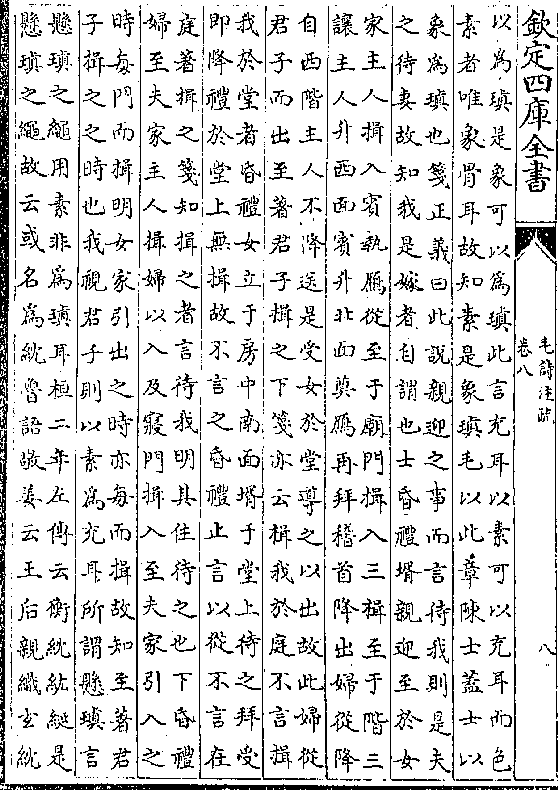 欽定四庫全書
毛詩注疏
卷八
八
以為瑱是象可以為瑱此言充耳以素可以充耳而色
素者唯象骨耳故知素是象瑱毛以此章陳士蓋士以
象為瑱也箋正義曰此說親迎之事而言待我則是夫
之待妻故知我是嫁者自謂也士昏禮壻親迎至於女
家主人揖入賓執鴈從至于廟門揖入三揖至于階三
讓主人升西面賓升北面奠鴈再拜稽首降出婦從降
自西階主人不降送是受女於堂導之以出故此婦從
君子而出至著君子揖之下箋亦云揖我於庭不言揖
我於堂者昏禮女立于房中南面壻于堂上待之拜受
即降禮於堂上無揖故不言之昏禮止言以從不言在
庭著揖之箋知揖之者言待我明其住待之也下昏禮
婦至夫家主人揖婦以入及寢門揖入至夫家引入之
時每門而揖明女家引出之時亦每而揖故知至著君
子揖之之時也我視君子則以素為充耳所謂懸瑱言
懸瑱之繩用素非為瑱耳桓二年左傳云衡紞紘綖是
懸瑱之繩故云或名為紞魯語敬姜云王后親織玄紞